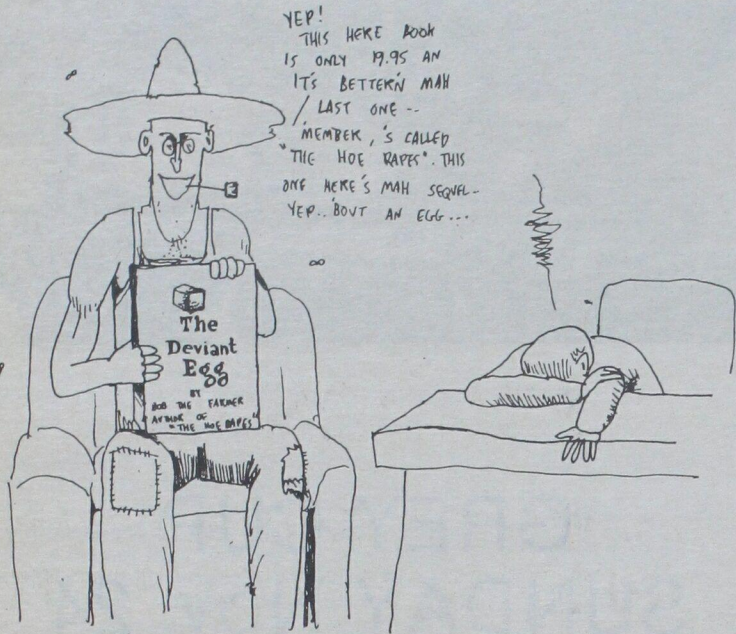 YEP!
THIS HERE BOOK
IS ONLY 19.95 AN
IT'S BETTER'N MAH
LAST ONE --
'MEMBER, 'S CALLED
"THE HOE RAPES". THIS
ONE HERE'S MAH SEQUEL--
YEP.. 'BOUT AN EGG...
The
Deviant
Egg
BY
BOB THE FARMER
AUTHOR OF
"THE HOE RAPES"